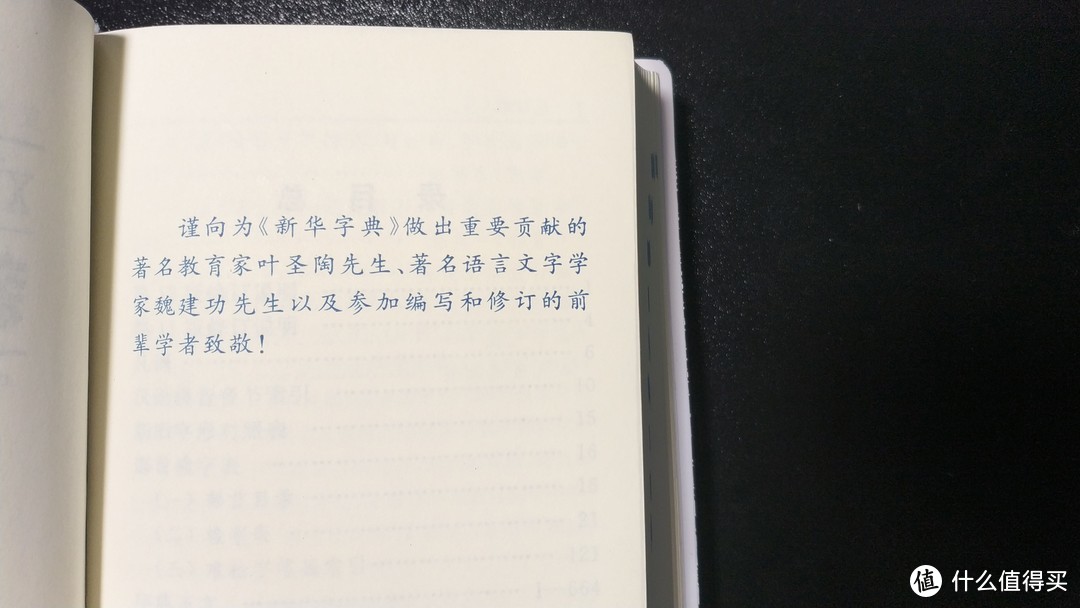 总 目 录
谨向为《新华字典》做出重要贡献的
著名教育家叶圣陶先生、著名语言文字学
家魏建功先生以及参加编写和修订的前
辈学者致敬！
值 什么值得买